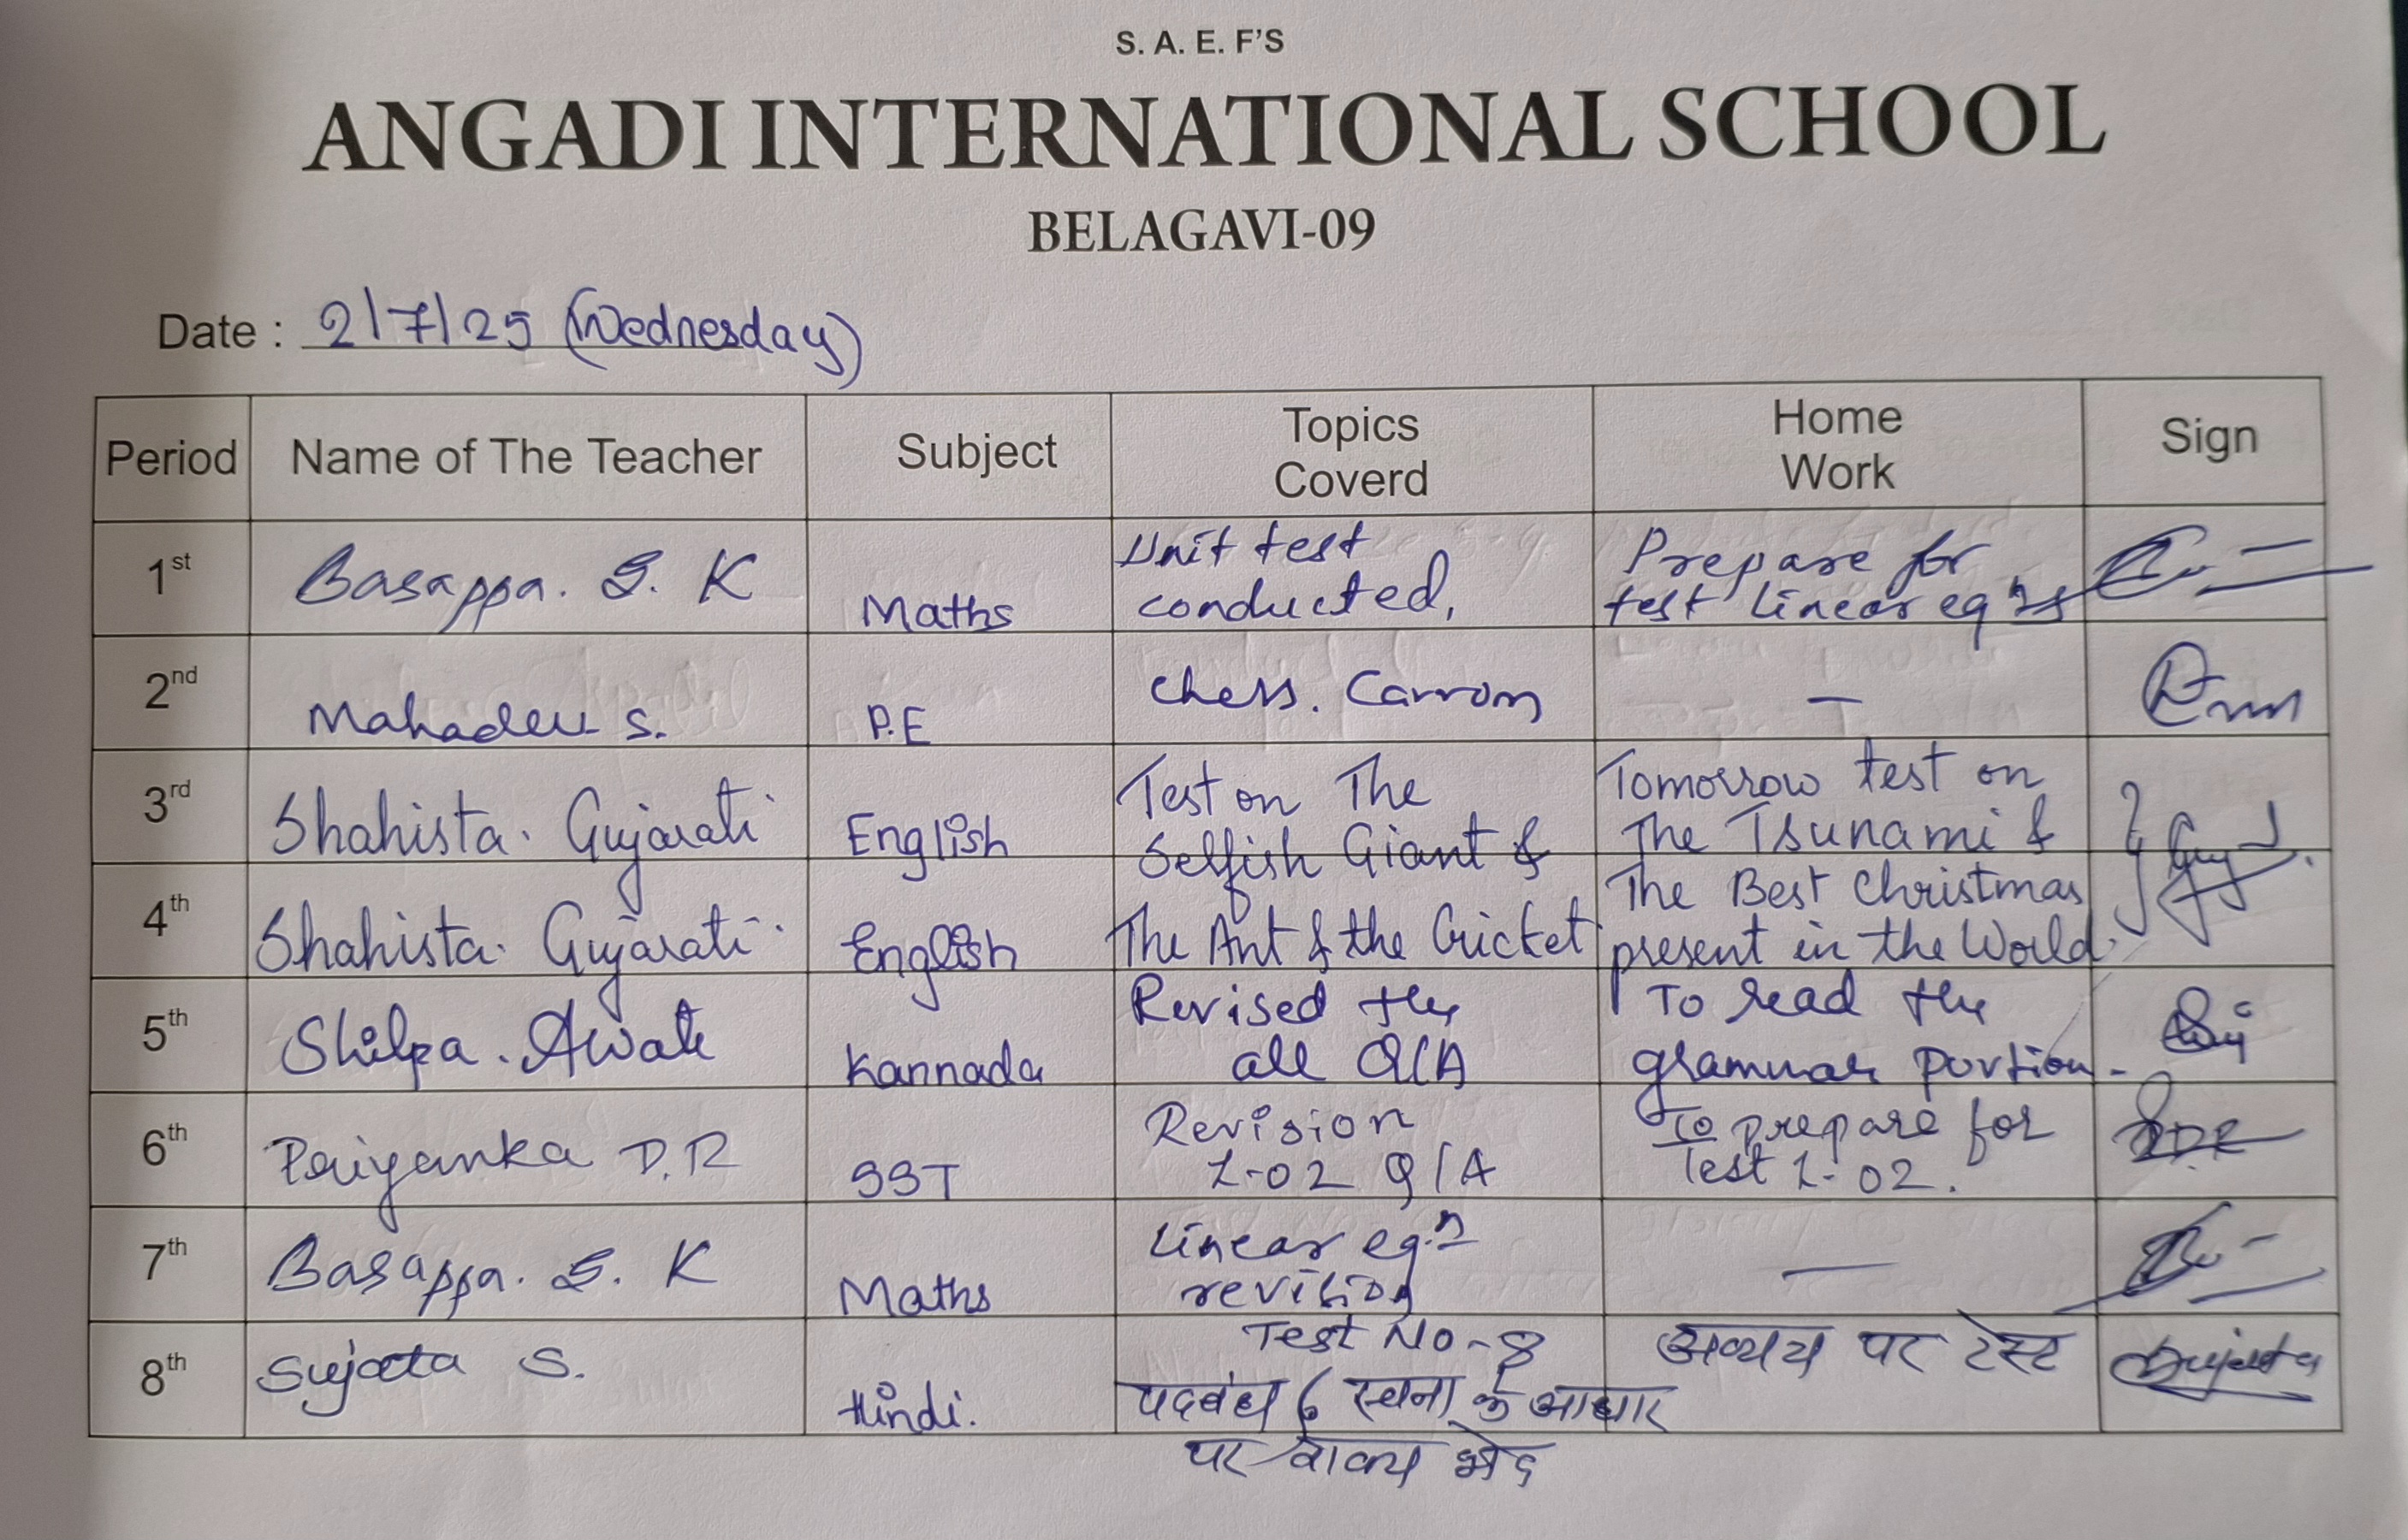 S. A. E. F'S
ANGADI INTERNATIONAL SCHOOL
BELAGAVI-09
Date : 2/7/25 (Wednesday)
Period Name of The Teacher Subject Topics Coverd Home Work Sign
1st Basappa. S. K Maths Unit test conducted, Prepare for test linear eqns
2nd Mahadev S. P.E Chess. Carrom —
3rd Shahista. Gujarati English Test on The Selfish Giant & Tomorrow test on The Tsunami &
4th Shahista. Gujarati. English The Ant & the Cricket The Best Christmas present in the World.
5th Shilpa. Awate Kannada Revised the all Q/A To read the grammar portion.
6th Priyanka D.R SST Revision L-02 Q/A To prepare for Test L-02.
7th Basappa. S. K Maths Linear eq.n revision —
8th Sujata S. Hindi. Test No-8 पदबंध, रचना के आधार पर वाक्य भेद अव्यय पर टेस्ट Sujata